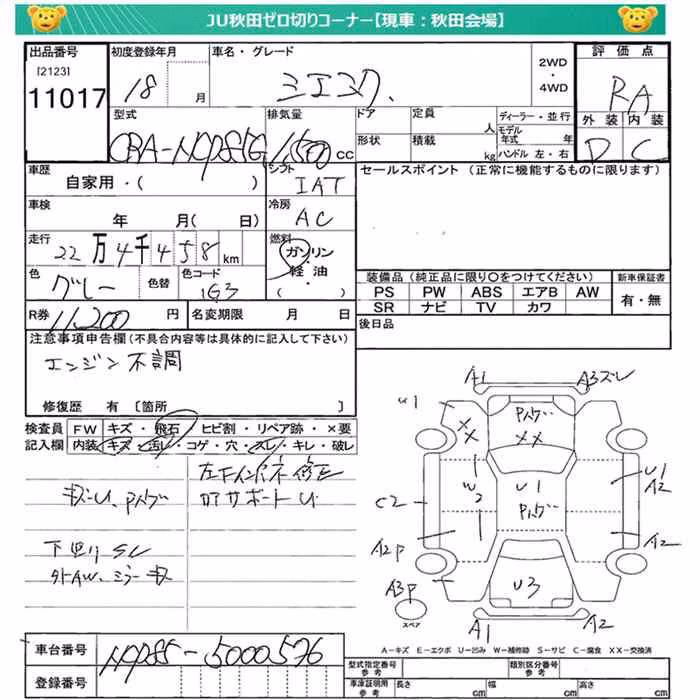 JU秋田ゼロ切りコーナー【現車：秋田会場】
出品番号 初度登録年月 車名・グレード 評価点
[2123]
11017 18 月 シエンタ 2WD・4WD RA
型式 排気量 ドア 定員 人 ディーラー・並行 外装 内装
モデル年式 年
形状 積載 kg ハンドル 左・右
1,500 cc D C
車歴 シフト セールスポイント（正常に機能するものに限ります）
自家用・（ ） IAT
車検 冷房
年 月（ 日） AC
走行 燃料
22万4千458km ガソリン
軽油・
（ ）
色 色替 色コード 装備品（純正品に限り〇をつけてください） 新車保証書
グレー 1G3 PS PW ABS エアB AW 有・無
SR ナビ TV カワ
R券 11,200 円 名変期限 月 日 後日品
注意事項申告欄（不具合内容等は具体的に記入して下さい）
エンジン不調
修復歴 有〔箇所 〕
検査員 FW キズ・飛石・ヒビ割・リペア跡・×要
記入欄 内装 キズ・汚レ・コゲ・穴・スレ・キレ・破レ
修正
サポート U
キズ・U、Pハゲ
下廻りSU
外AW、ミラーキズ
A1 A3ズレ
U1 XX Pハゲ XX
C2 W2 U1 Pハゲ U1 A2
A2P A2
A3P U3
スペア A1 A2
A－キズ E－エクボ U－凹み W－補修跡 S－サビ C－腐食 XX－交換済
車台番号 NCP85-5000576
登録番号
型式指定番号 参考 類別区分番号 参考
車庫証明用 参考 長さ cm 幅 cm 高さ cm